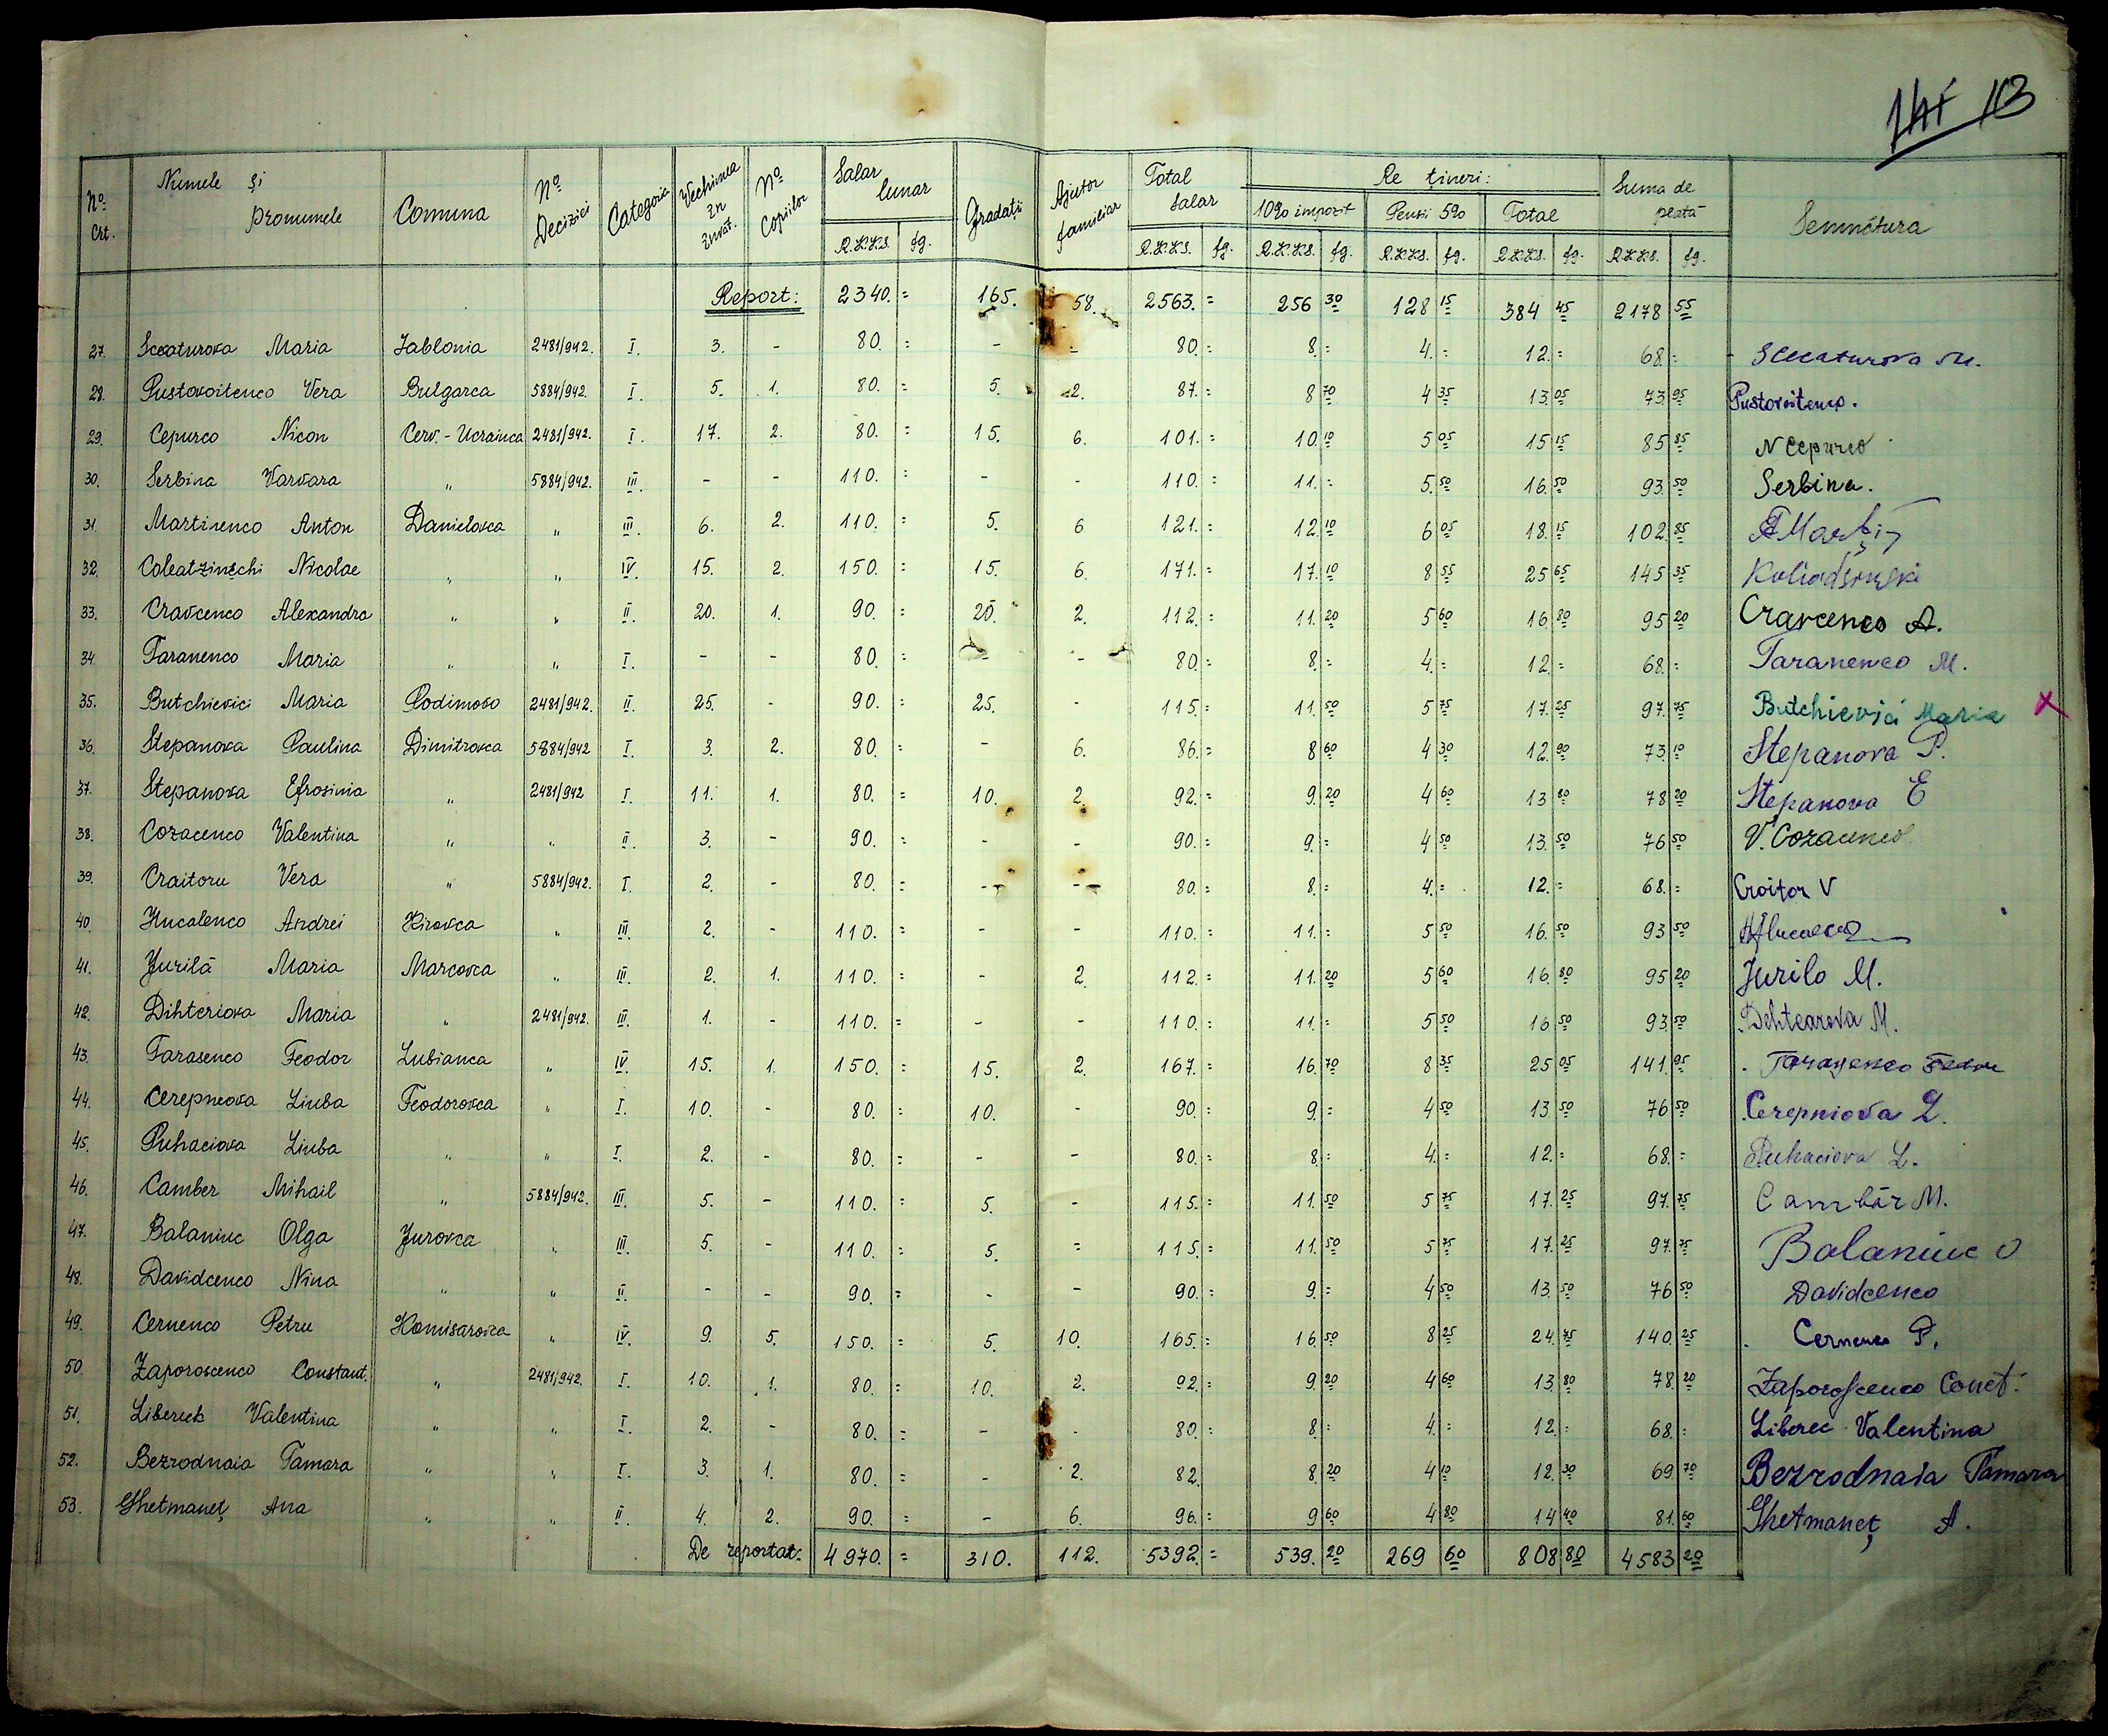 141 113
No. Crt. | Numele și pronumele | Comuna | No Deciziei | Categoria | Vechimea în învăt. | No Copiilor | Salar lunar R.K.K.S. fg. | Gradații | Ajutor familiar | Total Salar R.K.K.S. fg. | Rețineri: 10% impozit R.K.K.S. fg. | Pensii 5% R.K.K.S. fg. | Total R.K.K.S. fg. | Suma de plată R.K.K.S. fg. | Semnătura
Report: 2340.= 165. 58. 2563.= 256 30 128 15 384 45 2178 55
27. Scecaturova Maria Jablonia 2481/942. I. 3. - 80. = - - 80. = 8. = 4. = 12. = 68. = Scecaturova M.
28. Pustovoitenco Vera Bulgarca 5884/942. I. 5. 1. 80. = 5. 2. 87. = 8 70 4 35 13. 05 73. 95 Pustovoitenco.
29. Cepurco Nicon Cerv.-Ucrainca 2481/942. I. 17. 2. 80. = 15. 6. 101. = 10. 10 5 05 15 15 85 85 N Cepurco
30. Serbina Varvara " 5884/942. III. - - 110. = - - 110. = 11. = 5. 50 16. 50 93. 50 Serbina.
31. Martinenco Anton Danielovca " III. 6. 2. 110. = 5. 6 121. = 12. 10 6 05 18. 15 102. 85
32. Coleatzinschi Nicolae " " IV. 15. 2. 150. = 15. 6. 171. = 17. 10 8 55 25 65 145 35
33. Cravcenco Alexandra " " II. 20. 1. 90. = 20. 2. 112. = 11. 20 5 60 16 80 95 20 Cravcenco A.
34. Taranenco Maria " " I. - - 80. = - - 80. = 8. = 4. = 12. = 68. = Taranenco M.
35. Butchievici Maria Podimovo 2481/942. II. 25. - 90. = 25. - 115. = 11. 50 5 75 17. 25 97. 75 Butchievici Maria X
36. Stepanova Paulina Dimitrovca 5884/942 I. 3. 2. 80. = - 6. 86. = 8 60 4 30 12. 90 73. 10 Stepanova P.
37. Stepanova Efrosinia " 2481/942 I. 11. 1. 80. = 10. 2. 92. = 9. 20 4 60 13 80 78 20 Stepanova E
38. Cozacenco Valentina " " II. 3. - 90. = - - 90. = 9. = 4 50 13. 50 76 50 V. Cozacenco
39. Craitoru Vera " 5884/942. I. 2. - 80. = - - 80. = 8. = 4. = 12. = 68. = Croitor V
40. Hucalenco Andrei Kirovca " III. 2. - 110. = - - 110. = 11. = 5 50 16. 50 93 50
41. Jurilă Maria Marcovca " III. 2. 1. 110. = - 2 112. = 11. 20 5 60 16. 80 95 20 Jurilo M.
42. Dihteriova Maria " 2481/942. III. 1. - 110. = - - 110. = 11. = 5 50 16 50 93. 50 Dehtearova M.
43. Tarasenco Feodor Lubianca " IV. 15. 1. 150. = 15. 2. 167. = 16. 70 8 35 25 05 141. 95 Tarasenco Fedor
44. Cerepneova Liuba Feodorovca " I. 10. - 80. = 10. - 90. = 9. = 4 50 13. 50 76 50 Cerepniova L.
45. Puhaciova Liuba " " I. 2. - 80. = - - 80. = 8. = 4. = 12. = 68. = Puhaciova L.
46. Camber Mihail " 5884/942. III. 5. - 110. = 5. - 115. = 11. 50 5 75 17. 25 97. 75 Cambăr M.
47. Balaniuc Olga Jurovca " III. 5. - 110. = 5. = 115. = 11. 50 5 75 17. 25 97. 75 Balaniuc O
48. Davidcenco Nina " " II. - - 90. = - - 90. = 9. = 4 50 13. 50 76 50 Davidcenco
49. Cernenco Petru Komisarovca " IV. 9. 5. 150. = 5. 10. 165. = 16. 50 8 25 24. 75 140. 25 Cernenco P.
50. Zaporoscenco Constant. " 2481/942. I. 10. 1. 80. = 10. 2. 92. = 9. 20 4 60 13. 80 78. 20 Zaporoscenco Const.
51. Libereck Valentina " " I. 2. - 80. = - - 80. = 8. = 4. = 12. = 68. = Liberec Valentina
52. Bezrodnaia Tamara " " I. 3. 1. 80. = - 2. 82. 8. 20 4 10 12. 30 69. 70 Bezrodnaia Tamara
53. Ghetmaneț Ana " " II. 4. 2. 90. = - 6. 96. = 9 60 4 80 14 40 81. 60 Ghetmaneț A.
De reportat: 4970. = 310. 112. 5392. = 539. 20 269 60 808 80 4583 20